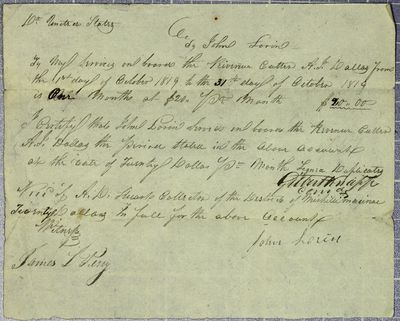 The United States
To John Lorin Dr
To My Service on board the Revenue Cutter A. J. Dallas from
the 1st day of October 1819 to the 31st day of October 1819
is One Months at $20. pr Month $20.00
I Certify that John Lorin Served on board the Revenue Cutter
A. J. Dallas the Period Stated in the above account
at the Rate of Twenty Dollars pr Month Signed Duplicates
Recd of A. D. Steuart Collector of the District of Michilimacinac
Twenty Dollars in full for the above account
Witness
John Lorin
James S Perry